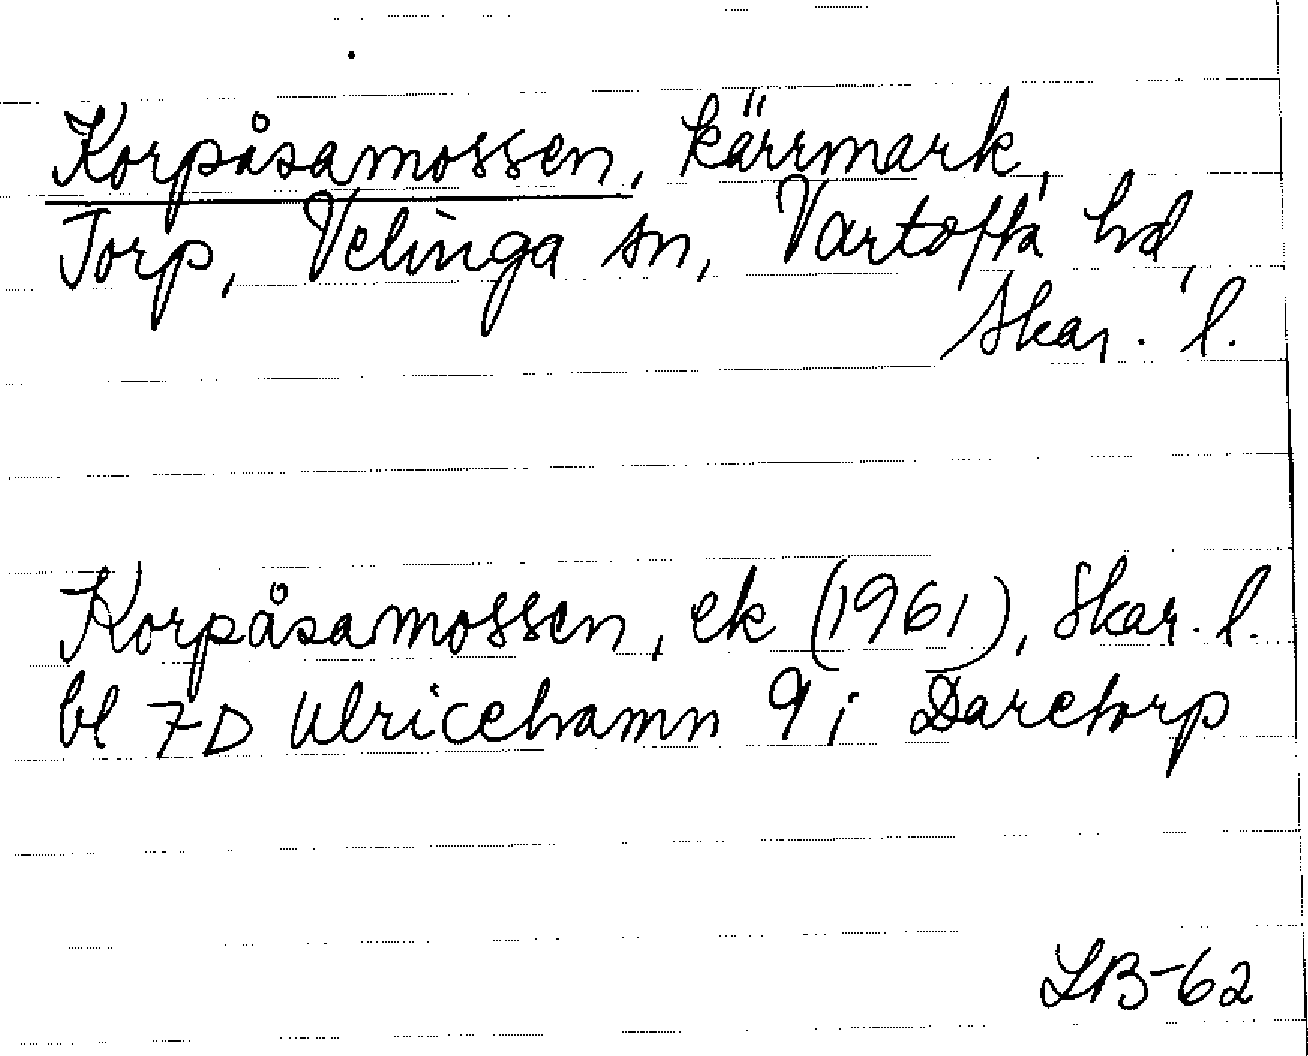 Korpåsamossen, kärrmark,
Torp, Velinga sn, Vartofta hd,
Skar. l.
Korpåsamossen, ek (1961), Skar. l.
bl 7D Ulricehamn 9i Daretorp
LB-62